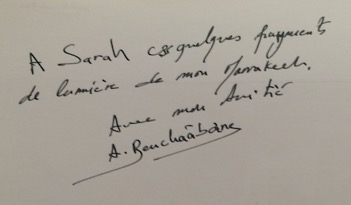 A Sarah ces quelques fragments
de lumière de mon Marrakech.
Avec mon Amitié
A. Benchaâbane